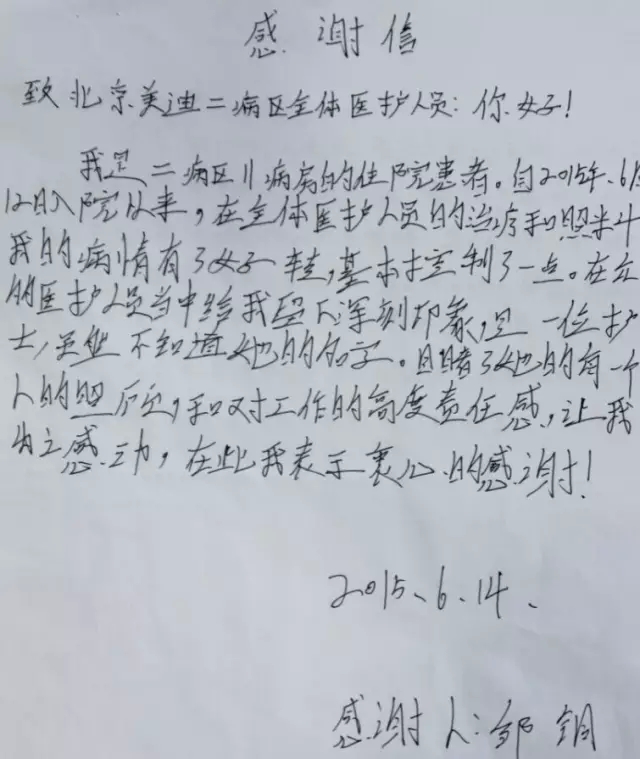 感谢信
致北京美迪二病区全体医护人员:你好!
我是二病区11病房的住院患者。自2015年.6月
12日入院以来,在全体医护人员的治疗和照料
我的病情有了好转,基本控制了一点。在众
的医护人员当中给我留下深刻印象,是一位护
士,虽然不知道她的名字。目睹了她的每一个
人的照顾,和对工作的高度责任感,让我
为之感动,在此我表示衷心的感谢!
2015、6、14、
感谢人:邹